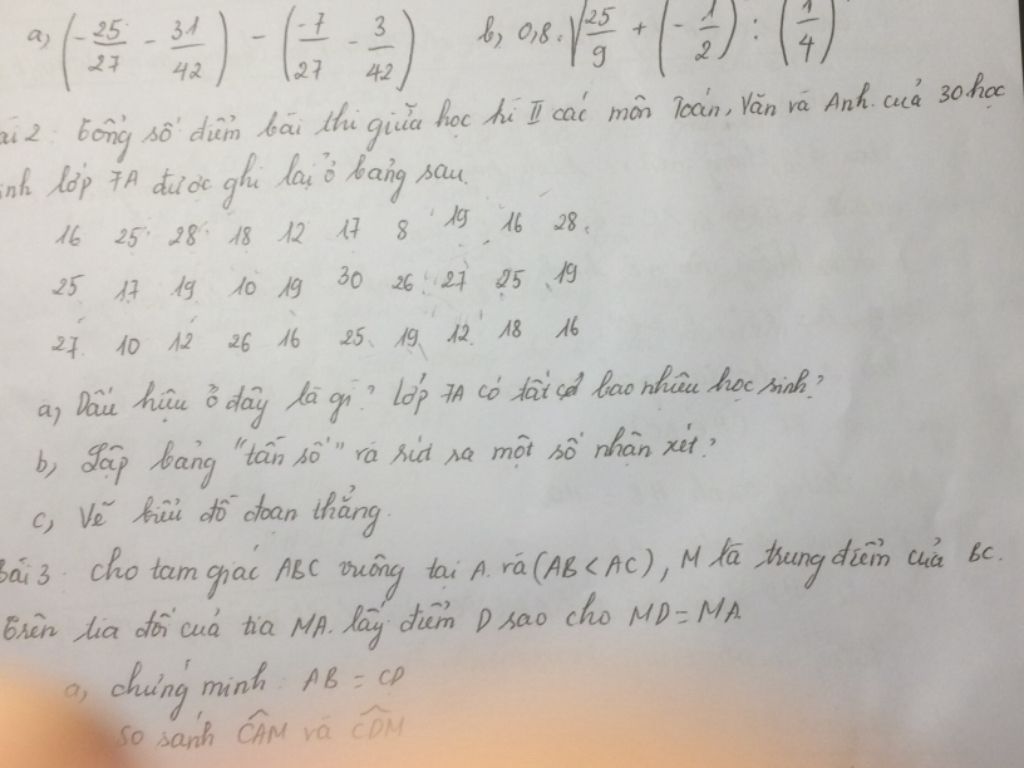 a, (-25/27 - 31/42) - (-7/27 - 3/42) b, 0,8. √25/9 + (-1/2) : (1/4)
ài 2. Tổng số điểm bài thi giữa học kì II các môn Toán, Văn và Anh. của 30 học
inh lớp 7A được ghi lại ở bảng sau.
16 25 28 18 12 17 8 19 16 28
25 17 19 10 19 30 26 27 25 19
27 10 12 26 16 25 19 12 18 16
a, Dấu hiệu ở đây là gì? Lớp 7A có tất cả bao nhiêu học sinh?
b, Lập bảng "tần số" và rút ra một số nhận xét?
c, Vẽ biểu đồ đoạn thẳng.
Bài 3. cho tam giác ABC vuông tại A. và (AB < AC), M là trung điểm của BC.
Trên tia đối của tia MA. lấy điểm D sao cho MD = MA
a, chứng minh: AB = CD
so sánh CÂM và CD̂M